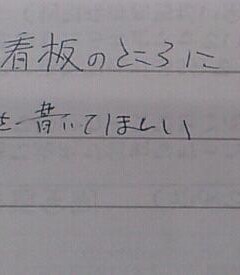 看板のところに
を書いてほしい